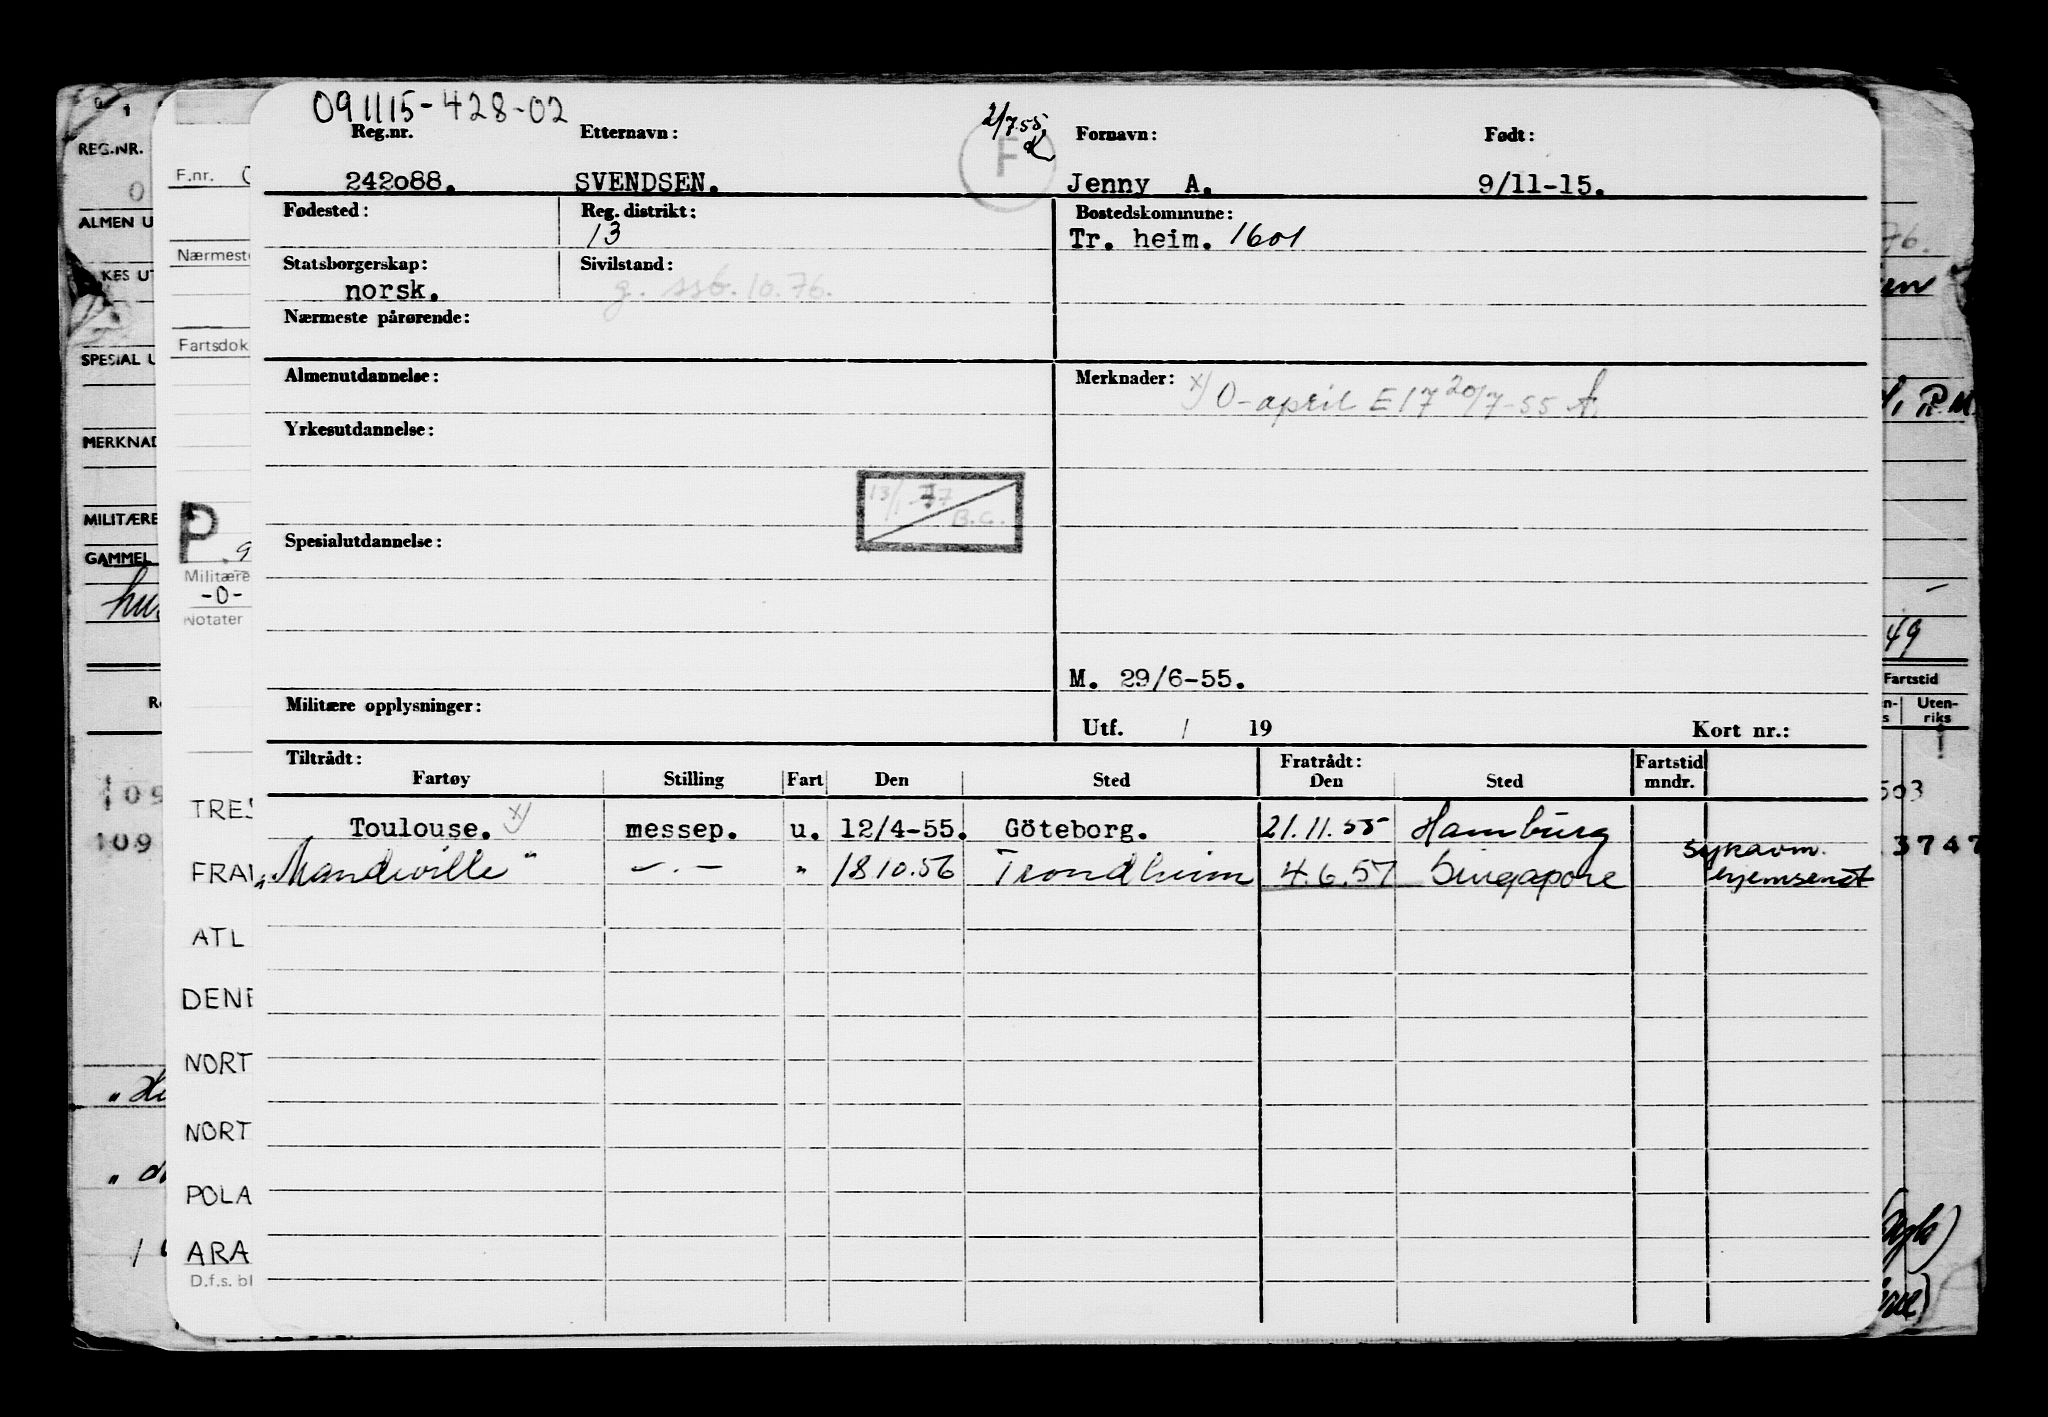 091115-428-02
2/7.55.
F
Reg.nr. Etternavn: Fornavn: Født:
242o88. SVENDSEN. Jenny A. 9/11-15.
Fødested: Reg. distrikt: Bostedskommune:
13 Tr. heim. 1601
Statsborgerskap: Sivilstand:
norsk. g. ssb. 10.76.
Nærmeste pårørende:
Almenutdannelse: Merknader: x) O-april E17 20/7-55
Yrkesutdannelse:
13/1-77 B.G.
Spesialutdannelse:
M. 29/6-55.
Militære opplysninger: Utf. / 19 Kort nr.:
Tiltrådt: Fratrådt: Fartstid
Fartøy Stilling Fart Den Sted Den Sted mndr.
Toulouse. x) messep. u. 12/4-55. Göteborg. 21.11.55 Hamburg
"Mandeville" -.- " 18 10.56 Trondheim 4.6.57 Singapore sykavm. hjemsendt
REG.NR.
0
ALMEN U
KES UT
SPESIAL U
MERKNAD
MILITÆRE
GAMMEL
109
109
F.nr. 0
Nærmeste
Fartsdok
P
9
Militære
-0-
Notater
TRES
FRA
ATL
DENE
NORT
NORT
POLA
ARA
D.f.s. bl
76.
en
P.M.
49
Fartstid
Uten-
riks
503
3747